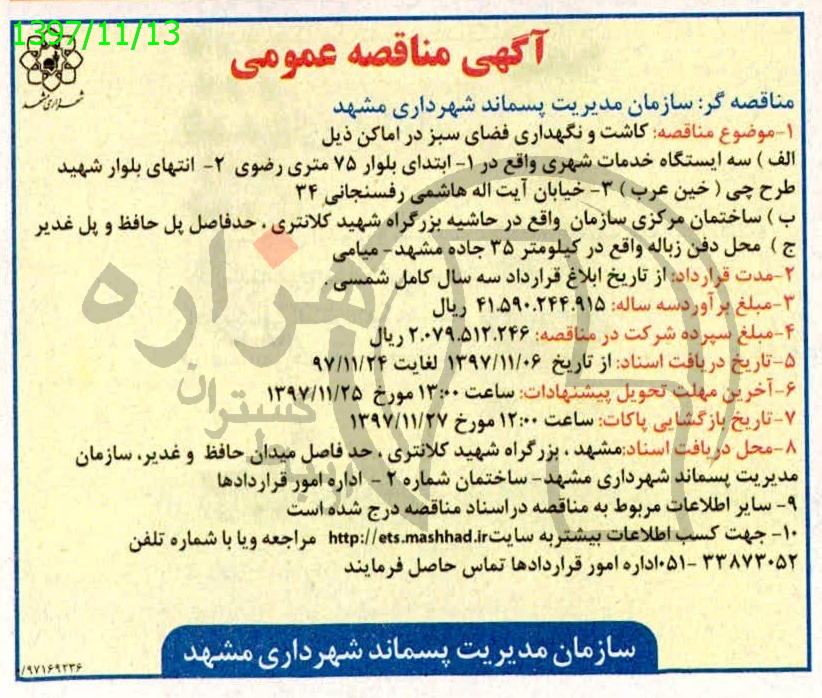 1397/11/13
آگهی مناقصه عمومی
شهرداری مشهد
مناقصه گر: سازمان مدیریت پسماند شهرداری مشهد
۱-موضوع مناقصه: کاشت و نگهداری فضای سبز در اماکن ذیل
الف ) سه ایستگاه خدمات شهری واقع در ۱- ابتدای بلوار ۷۵ متری رضوی ۲- انتهای بلوار شهید
طرح چی ( خین عرب ) ۳- خیابان آیت اله هاشمی رفسنجانی ۳۴
ب ) ساختمان مرکزی سازمان واقع در حاشیه بزرگراه شهید کلانتری ، حدفاصل پل حافظ و پل غدیر
ج ) محل دفن زباله واقع در کیلومتر ۳۵ جاده مشهد- میامی
۲-مدت قرارداد: از تاریخ ابلاغ قرارداد سه سال کامل شمسی .
۳-مبلغ برآوردسه ساله: ۴۱.۵۹۰.۲۴۴.۹۱۵ ریال
۴-مبلغ سپرده شرکت در مناقصه: ۲.۰۷۹.۵۱۲.۲۴۶ ریال
۵-تاریخ دریافت اسناد: از تاریخ ۱۳۹۷/۱۱/۰۶ لغایت ۹۷/۱۱/۲۴
۶-آخرین مهلت تحویل پیشنهادات: ساعت ۱۳:۰۰ مورخ ۱۳۹۷/۱۱/۲۵
۷-تاریخ بازگشایی پاکات: ساعت ۱۲:۰۰ مورخ ۱۳۹۷/۱۱/۲۷
۸-محل دریافت اسناد:مشهد ، بزرگراه شهید کلانتری ، حد فاصل میدان حافظ و غدیر، سازمان
مدیریت پسماند شهرداری مشهد- ساختمان شماره ۲ - اداره امور قراردادها
۹- سایر اطلاعات مربوط به مناقصه دراسناد مناقصه درج شده است
۱۰- جهت کسب اطلاعات بیشتربه سایت http://ets.mashhad.ir مراجعه ویا با شماره تلفن
۳۳۸۷۳۰۵۲ -۰۵۱اداره امور قراردادها تماس حاصل فرمایند
سازمان مدیریت پسماند شهرداری مشهد
/۹۷۱۶۹۲۳۶
هزاره
گستران